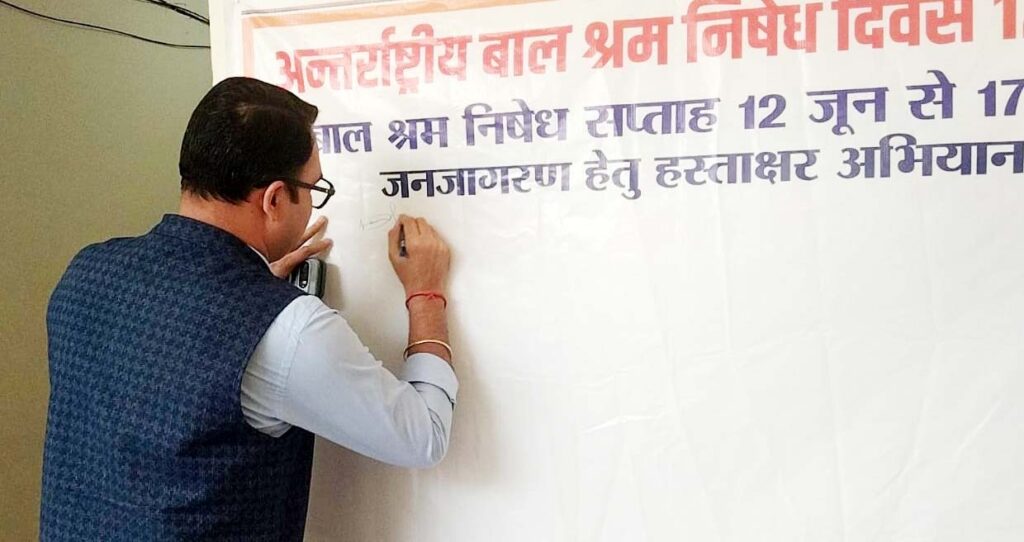 अन्तर्राष्ट्रीय बाल श्रम निषेध दिवस 1
बाल श्रम निषेध सप्ताह 12 जून से 17
जनजागरण हेतु हस्ताक्षर अभियान